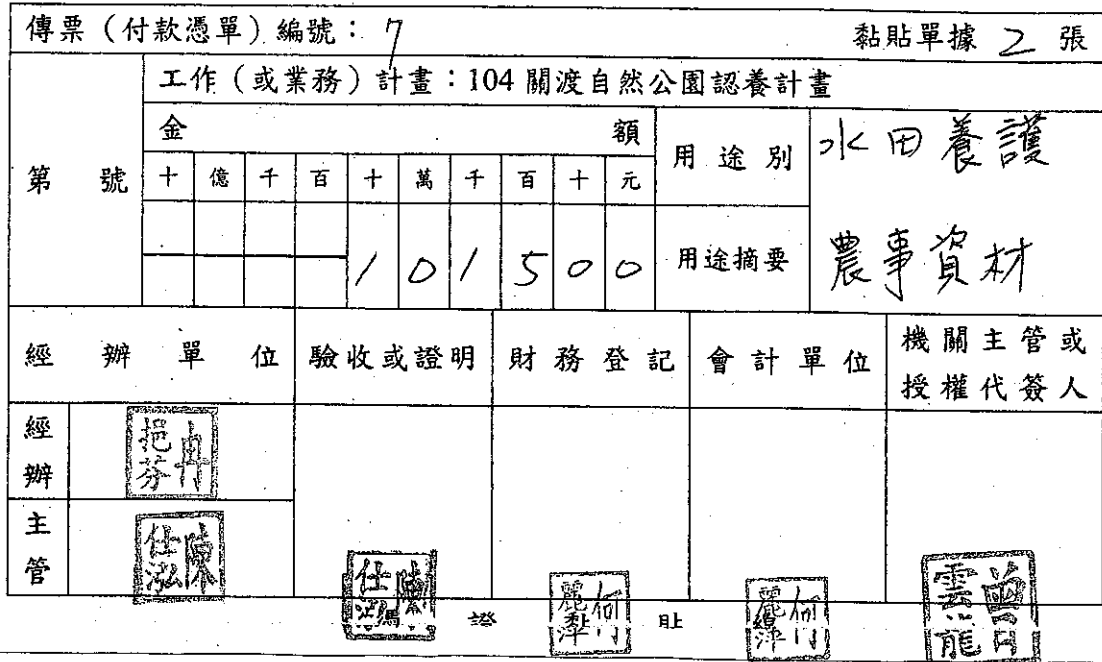 傳票（付款憑單）編號：7 黏貼單據 2 張
工作（或業務）計畫：104 關渡自然公園認養計畫
第 號
金 額
十 億 千 百 十 萬 千 百 十 元
1 0 1 5 0 0
用途別 水田養護
用途摘要 農事資材
經辦單位 驗收或證明 財務登記 會計單位 機關主管或
授權代簽人
經辦
冉挹芬
主管
陳仕泓 陳仕泓 何麗萍 何麗萍
證